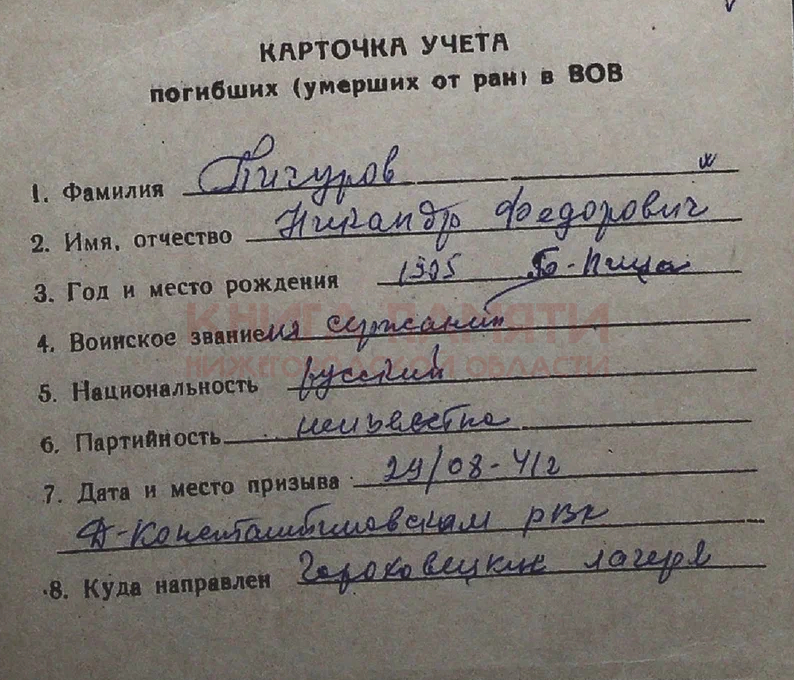 КАРТОЧКА УЧЕТА
погибших (умерших от ран) в ВОВ
1. Фамилия Пичуров
2. Имя, отчество Никандр Федорович
3. Год и место рождения 1905
КНИГА ПАМЯТИ
4. Воинское звание мл сержант
НИЖЕГОРОДСКОЙ ОБЛАСТИ
5. Национальность русский
6. Партийность неизвестно
7. Дата и место призыва 29/08-41г
Д-Константиновским рвк
8. Куда направлен Гороховецкие лагеря